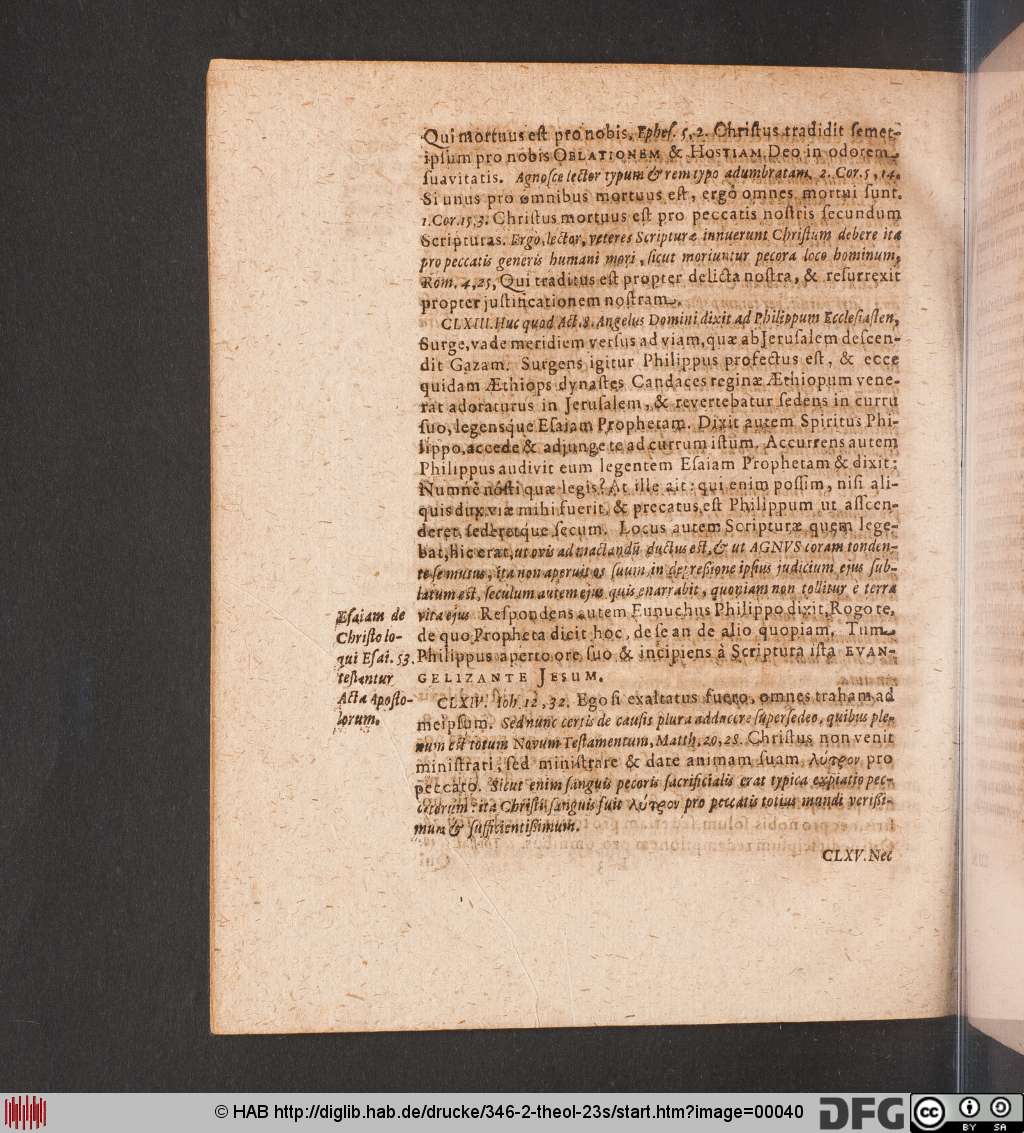 Qui mortuus est pro nobis. Ephes. 5, 2. Christus tradidit semet-
ipsum pro nobis OBLATIONEM & HOSTIAM Deo in odorem
suavitatis. Agnosce lector typum & rem typo adumbratam. 2. Cor. 5, 14.
Si unus pro omnibus mortuus est, ergò omnes mortui sunt.
1. Cor. 15, 3. Christus mortuus est pro peccatis nostris secundum
Scripturas. Ergo, lector, veteres Scripturæ innuerunt Christum debere ita
pro peccatis generis humani mori, sicut moriuntur pecora loco hominum,
Rom. 4, 25, Qui traditus est propter delicta nostra, & resurrexit
propter justificationem nostram.
CLXIII. Huc quod Act. 8. Angelus Domini dixit ad Philippum Ecclesiasten,
Surge, vade meridiem versus ad viam, quæ ab Jerusalem descen-
dit Gazam. Surgens igitur Philippus profectus est, & ecce
quidam Æthiops dynastes Candaces reginæ Æthiopum vene-
rat adoraturus in Jerusalem, & revertebatur sedens in curru
suo, legensque Esaiam Prophetam. Dixit autem Spiritus Phi-
lippo, accede & adjunge te ad currum istum. Accurrens autem
Philippus audivit eum legentem Esaiam Prophetam & dixit:
Numnè nôsti quæ legis? At ille ait: qui enim possim, nisi ali-
quis dux viæ mihi fuerit, & precatus est Philippum ut asscen-
deret, sederetque secum. Locus autem Scripturæ quem lege-
bat, hic erat, ut ovis ad mactandū ductus est, & ut AGNVS coram tonden-
te se mutus, ita non aperuit os suum, in depressione ipsius judicium ejus sub-
latum est, seculum autem ejus quis enarrabit, quoniam non tollitur è terra
vita ejus Respondens autem Eunuchus Philippo dixit, Rogo te,
de quo Propheta dicit hoc, de se an de alio quopiam. Tum
Philippus aperto ore suo & incipiens à Scriptura ista EVAN-
GELIZANTE JESUM.
Esaiam de
Christo lo-
qui Esai. 53.
testantur
Acta Aposto-
lorum.
CLXIV. Ioh. 12, 32. Ego si exaltatus fuero, omnes traham ad
meipsum. Sed nunc certis de causis plura adducere supersedeo, quibus ple-
num est totum Novum Testamentum, Matth. 20, 28. Christus non venit
ministrari, sed ministrare & dare animam suam λύτρον pro
peccato. Sicut enim sanguis pecoris sacrificialis erat typica expiatio pec-
catorum: ita Christi sanguis fuit λύτρον pro peccatis totius mundi verissi-
mum & sufficientissimum.
CLXV. Nec
© HAB http://diglib.hab.de/drucke/346-2-theol-23s/start.htm?image=00040
DFG
cc BY SA